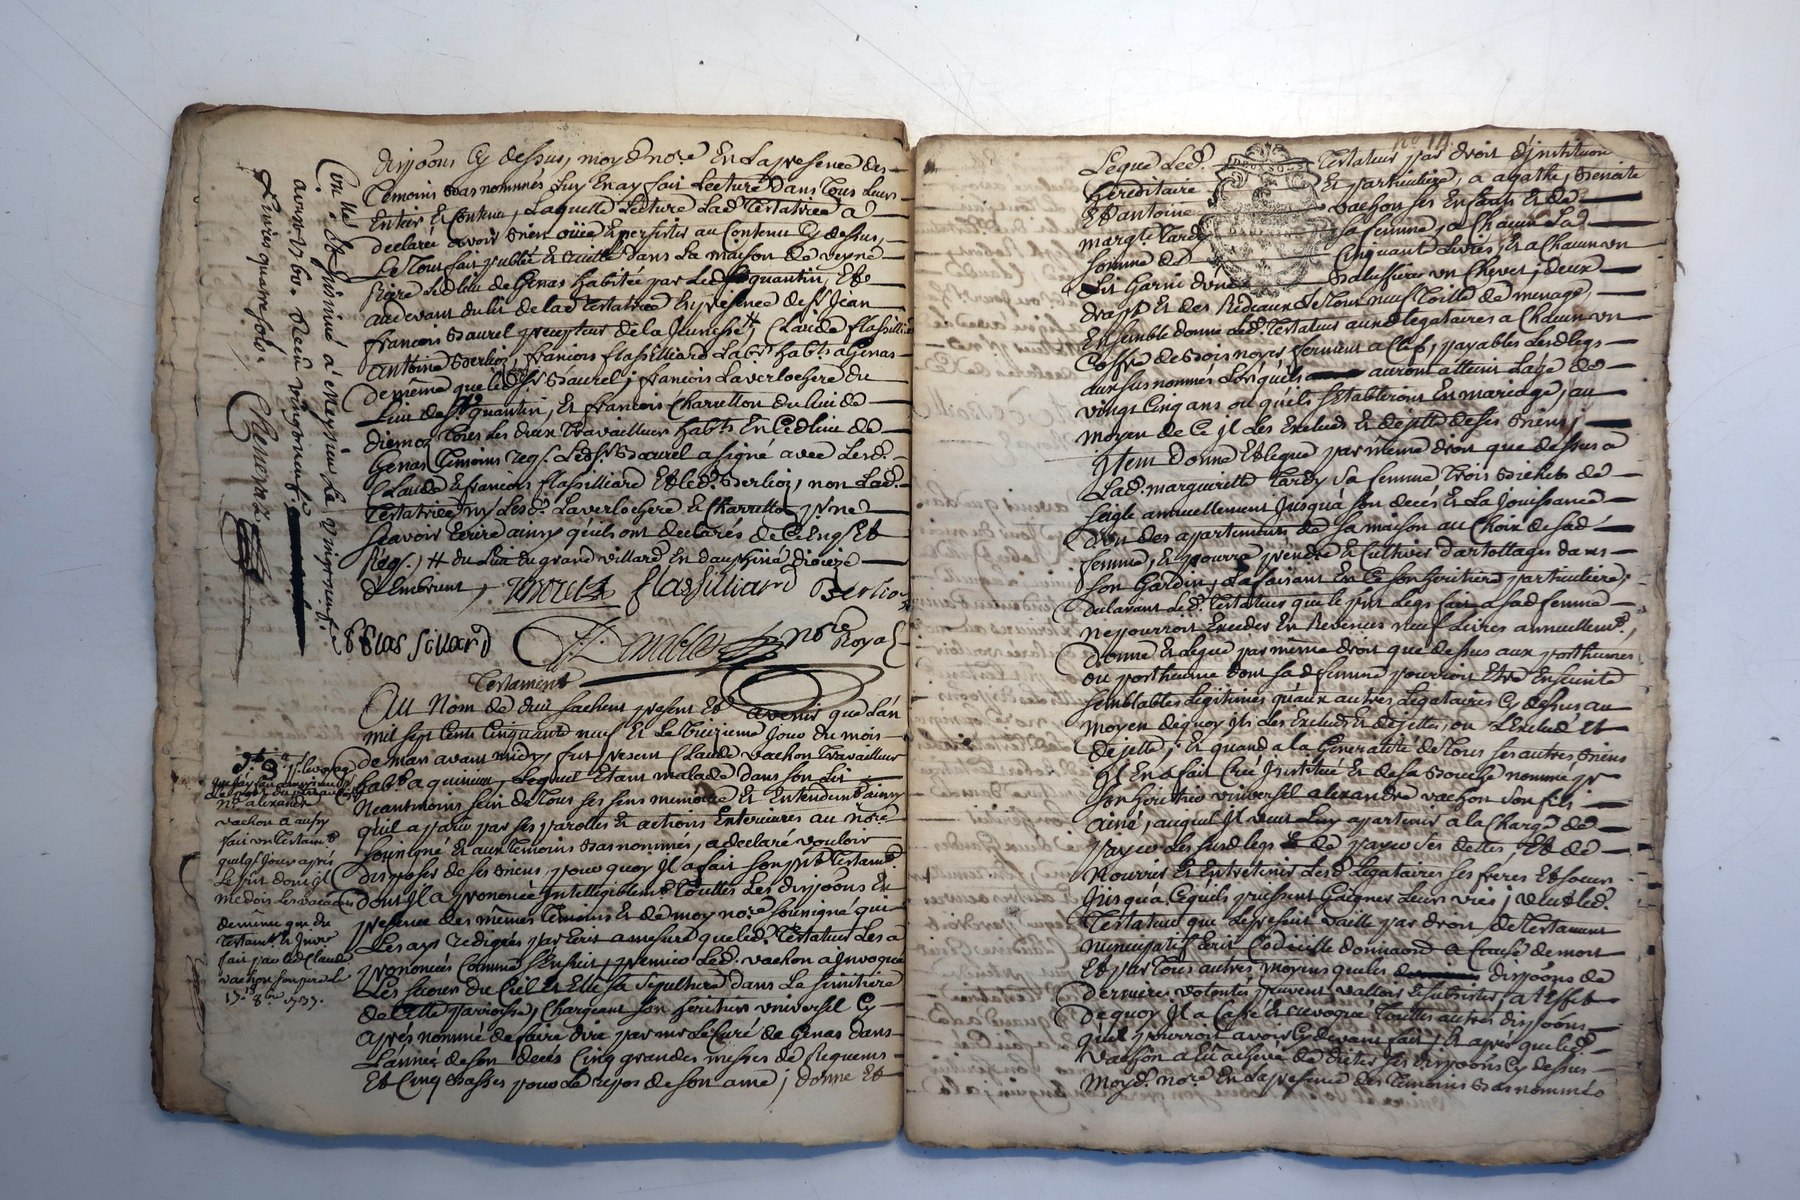 dispõons Cy dessus, moyd nore En La presence des
Temoins Bas nommés Luy En ay fait Lecture Dans Tous Leurs
Entier Et Contenu, Laquelle Lecture Lad. Testatrice a
declaré avoir Bien ouïe Et persister au Contenu Cy dessus,
Le Tout fait publié Et Dans la maison de
Rière Led. lieu de Genas habitée par Led. Sr quantin, Et
au devant du lit de lad Testatrice En présence de Sr Jean
françois Baurel precepteur de la Jeunesse # Claude flassilliard
antoine Berlioz, françois flassilliard Labrs habts a Genas
de même que led. Sr Baurel, françois Laverlochere du
Lieu de St quantin, Et françois Charretton du lieu de
diemoz Tous Les deux Travailleurs habts En Ced. lieu de
Genas Temoins reqs. Led. Sr Baurel a signé avec Lesd.
Claude Et françois flassilliard Et led. Berlioz, non Lad.
Testatrice ny Lesd. Laverlochere Et Charretton pour ne
sçavoir Ecrire ainsy qu'ils ont declarés de Ce Enqs Et
Reqs. # du lieu du grand villard En dauphiné dioceze
d'Embrun, flassilliard Berlioz
flas sillard nore Royal
Conlle. Et Insinué à Meyzieu Le vingtneuf
avril 1760. Reçu vingtneuf
Livres quatre sols.
Testament
Au Nom de dieu sachent present Et avenir que L'an
mil sept Cents Cinquante neuf Et Le Treizieme Jour du mois
de mars avant midy fut present Claude vachon Travailleur
habt a , Lequel Etant malade dans son Lit
Neantmoins sain de Tous ses sens memoire Et Entendemt ainsy
qu'il a paru par ses parolles Et actions Exterieures au nore
soussigné Et aux Temoins Bas nommés, a declaré vouloir
disposer de ses Biens, pour quoy Il a fait son prt Testamt
dont Il a prononcé Intelligiblement Touttes Les dispõons En
presence des mêmes Temoins Et de moy nore soussigné qui
Les ays redigées par Ecrit a mesure que led. Testateur Les a
prononcées Comme s'Ensuit, premier Led. vachon a Invoqué
Les secour du Ciel Et Elu sa sepulture dans Le simitiere
de Cette parroisse, Chargeant son heritier universel Cy
après nommé de faire dire par mr Le Curé de Genas dans
L'année de son decès Cinq grandes messes de Requiems
Et Cinq Basses pour Le repos de son ame ; donne Et
Nt alexandre
vachon a aussy
fait un Testamt
quelqs Jour après
Le sien dont Il
me dois Les vacations
de même que du
Testamt
fait par led Claude
vachon son pere Le
Legue Led. Testateur par droit d'institution
hereditaire Et particuliere, a agathe, Benoite
Et antoine vachon ses Enfants Et de
margte Tardy sa femme, a Chacun La
somme de Cinquante Livres, Et a Chacun un
Lit Garni d'une un Chevet, deux
draps Et des Rideaux Le Tout neuf Toille de menage,
Ensemble donne Led. Testateur auxd legataires a Chacun un
Coffre de Bois noyer fermant a Clef, payables Lesd legs
aux sus nommés Lorsquils auront atteint L'age de
vingt Cinq ans ou quils s'Etabliront En mariage, au
moyen de Ce Il Les Exclud Et dejette de ses Biens ;
Item donne Et legue par même droit que dessus a
Lad. marguerite Tardy sa femme Trois Bichets de
seigle annuellement Jusqu'a son decès Et La Jouissance
d'un des appartements de sa maison au Choix de sad.
femme, Et pourra prendre Et Cultiver d'artollages dans
son Gardin, La faisant En Ce son heritiere particuliere,
declarant Led. Testateur que le prt Legs fait a sad femme
ne pourroit Exceder En Revenus neuf Livres annuellemt,
donne Et Legue par même droit que dessus aux posthumes
ou posthume dont sad femme pourroit Etre Enceinte
semblables Legitimes qu'aux autres Legataires Cy dessus au
moyen de quoy Il Les Exclud Et dejette, ou L'exclud Et
dejette ; Et quand a la Generalité de Tous ses autres Biens
Il En a fait Creé Institué Et de sa Bouche nommé pr
son heritier universel alexandre vachon son fils
ainé, auquel Il veut appartenir a la Charge de
payer Les susd legs Et de payer ses dettes, Et de
Nourrir Et Entretenir Lesd Legataires ses fréres Et soeurs
Jusqu'a Ce quils puissent Gaigner Leurs vies ; veut led.
Testateur que Le present vaille par droit de Testament
nuncupatif Ecrit Codicille donnaõn a Cause de mort
Et par Tous autres moyens que les dispõons de
derniere volontés peuvent valloir Et subsister, a l'Effet
de quoy Il a Cassé Et revoqué Touttes autres dispõons
qu'il pourroit avoir Cy devant fait, Et après que led.
vachon a Eu achevé de dicter ses dispõons Cy dessus
Moyd. nore En La presence des Temoins Bas nommés